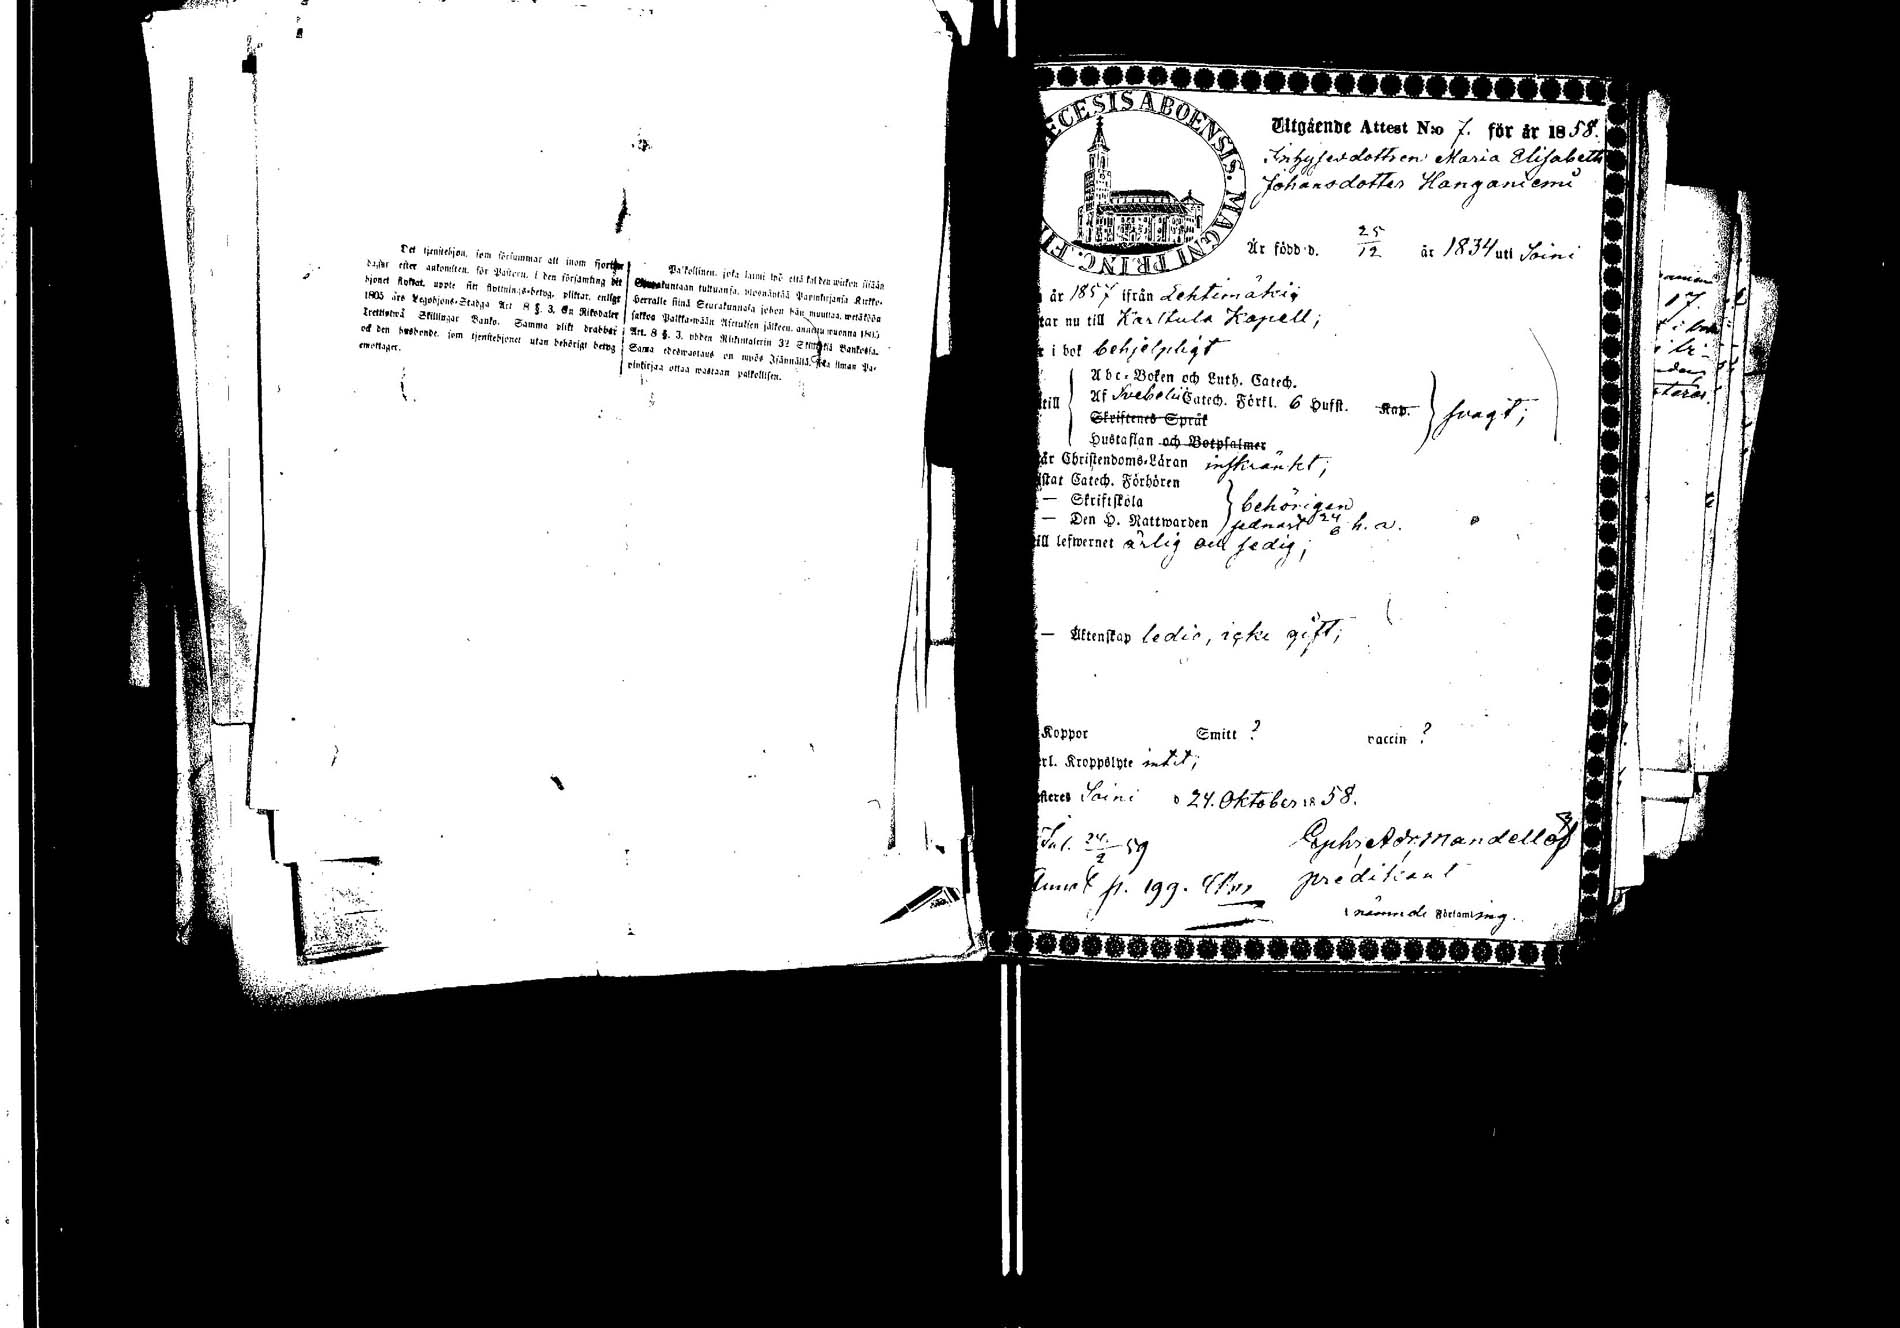 Det tjenstehjon, som försummar att inom fjorton
dagar efter ankomsten, för Pastorn, i den församling dit
hjonet flyttat, uppte sitt flyttnings-betyg, pliktar, enligt
1805 års Legohjons-Stadga Art 8 §. 3, En Riksdaler
Trettiotwå Skillingar Banko. Samma plikt drabbar
ock den husbonde, som tjenstehjonet utan behörigt betyg
emottager.
Palkollinen, joka laimi lyö että kahden wiikon sisään
Seurakuntaan tultuansa, ylösnäyttää Papinkirjansa Kirkko-
herralle siinä Seurakunnasa johon hän muuttaa, wetäköön
sakkoa Palkka-wään Asetuksen jälkeen, annettu wuonna 1805
Art. 8 §. 3, yhden Riksitalerin 32 Skillinkiä Bankossa.
Sama edeswastaus on myös Isännällä, joka ilman Pa-
pinkirjaa ottaa wastaan palkollisen.
ECESIS ABOENSIS. MAGNI PRINC. FI
Utgående Attest N:o 7. för år 1858.
Inhysesdottren Maria Elisabeth
Johansdotter Hanganiemi
Är född d. 25/12 år 1834 uti Soini
år 1857 ifrån Lehtimäki
tar nu till Karstula Kapell;
i bok behjelpligt
Abc-Boken och Luth. Catech.
till Af Svebelii Catech. Förkl. 6 Hufst. Kap. svagt;
Skriftenes Språk
Hustaflan och Botpsalmer
år Christendoms-Läran inskränkt;
stat Catech. Förhören
— Skriftskola behörigen
— Den H. Nattwarden sednast 24/6 h. a.
till lefwernet ärlig och sedig;
— Äktenskap ledig, icke gift;
Koppor Smitt ? vaccin ?
erl. Kroppslyte intet;
steres Soini d 24. Oktober 1858.
24/2 59
Ephr Adr. Mandellöf
p. 199.
predikant
i nämnde Församling.